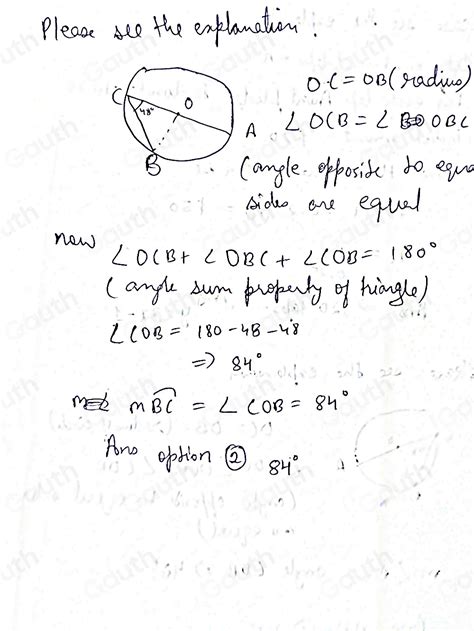 Please see the explanation.
C 48° O A B
OC = OB (radius)
∠OCB = ∠OBC
(angle opposite to equa
sides are equal
now
∠OCB + ∠OBC + ∠COB = 180°
(angle sum property of triangle)
∠COB = 180 - 48 - 48
⇒ 84°
m BC = ∠COB = 84°
Ans option ② 84°
Gauth